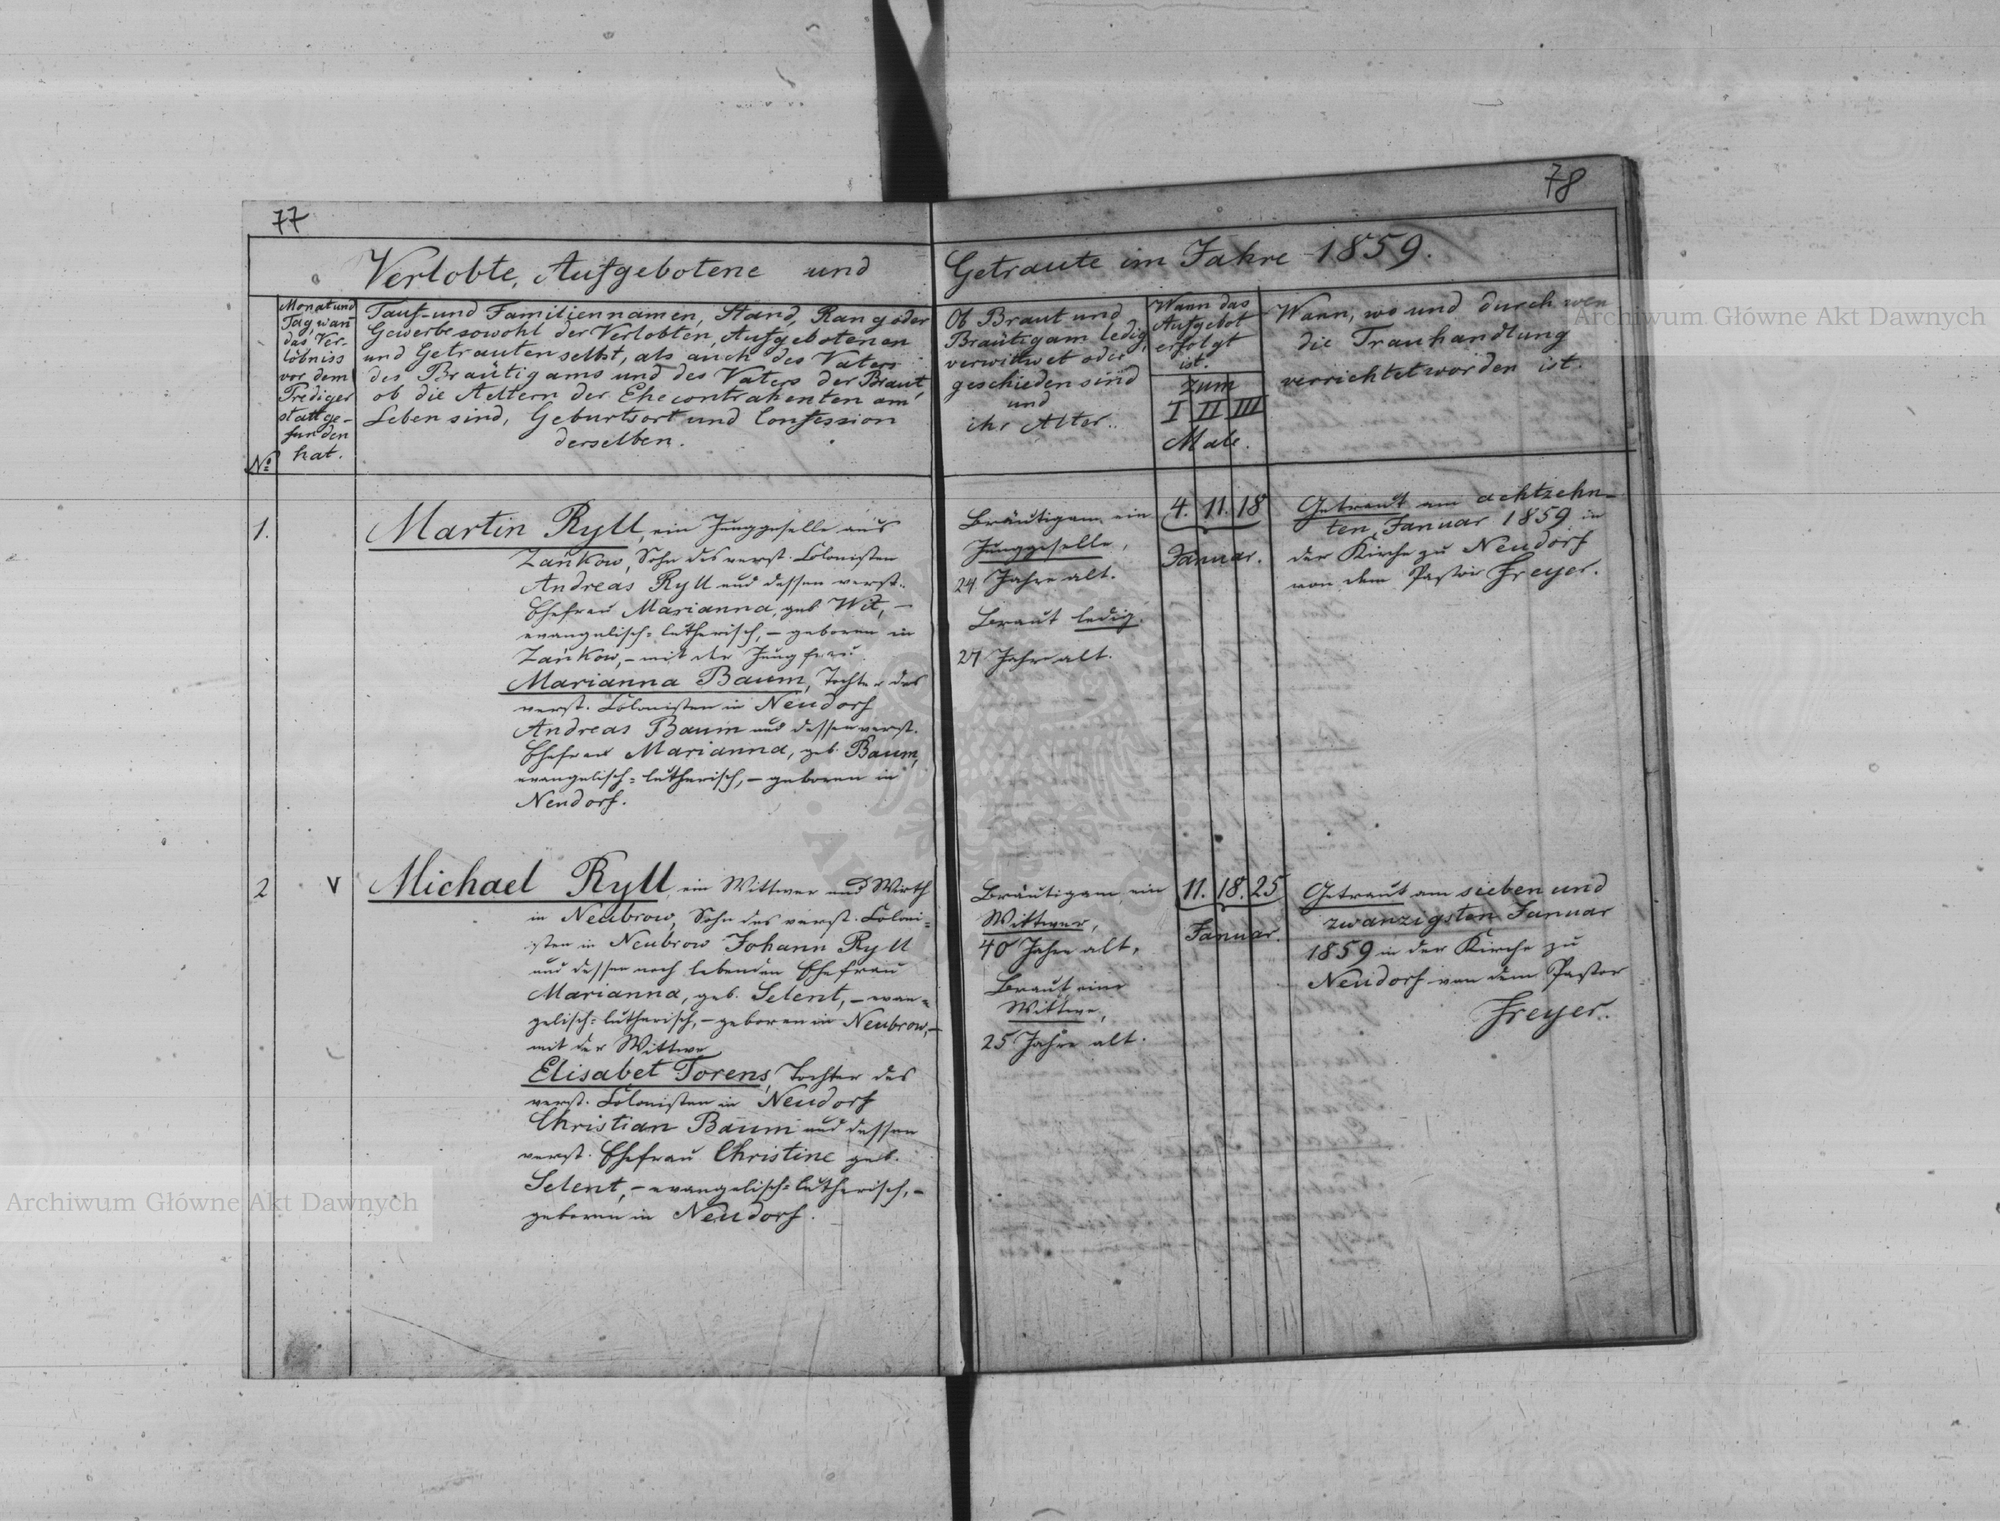 77
78
Verlobte, Aufgebotene und
Getraute im Jahre 1859.
No
Monat und
Tag, wan
das Ver-
löbniss
vor dem
Prediger
stattge-
funden
hat.
Tauf- und Familiennamen, Stand, Rang oder
Gewerbe sowohl der Verlobten, Aufgebotenen
und Getrauten selbst, als auch des Vaters
des Bräutigams und des Vaters der Braut,
ob die Aeltern der Ehecontrahenten am
Leben sind, Geburtsort und Confession
derselben.
Ob Braut und
Bräutigam ledig,
verwittwet oder
geschieden sind
und
ihr Alter.
Wann das
Aufgebot
erfolgt
ist.
zum
I II III
Male.
Wann, wo und durch wen
die Trauhandlung
verrichtet worden ist.
1.
Martin Ryll, ein Junggeselle aus
Zankow, Sohn des verst. Colonisten
Andreas Ryll und dessen verst.
Ehefrau Marianna, geb. Wit, –
evangelisch=lutherisch, – geboren in
Zankow, – mit der Jungfrau
Marianna Baum, Tochter des
verst. Colonisten in Neudorf
Andreas Baum und dessen verst.
Ehefrau Marianna, geb. Baum,
evangelisch=lutherisch, – geboren in
Neudorf.
Bräutigam, ein
Junggeselle,
24 Jahre alt.
Braut ledig.
21 Jahre alt.
4. 11. 18
Januar.
Getraut am achtzehn-
ten Januar 1859 in
der Kirche zu Neudorf
von dem Pastor Freyer.
2
v
Michael Ryll, ein Wittwer und Wirth
in Neubrow, Sohn des verst. Coloni-
sten in Neubrow Johann Ryll
und dessen noch lebenden Ehefrau
Marianna, geb. Selent, – evan-
gelisch=lutherisch, – geboren in Neubrow, –
mit der Wittwe
Elisabet Torens, Tochter des
verst. Colonisten in Neudorf
Christian Baum und dessen
verst. Ehefrau Christine geb.
Selent, – evangelisch=lutherisch, –
geboren in Neudorf.
Bräutigam, ein
Wittwer,
40 Jahre alt,
Braut eine
Wittwe,
25 Jahre alt.
11. 18. 25
Januar.
Getraut am sieben und
zwanzigsten Januar
1859 in der Kirche zu
Neudorf von dem Pastor
Freyer.
Archiwum Główne Akt Dawnych
Archiwum Główne Akt Dawnych